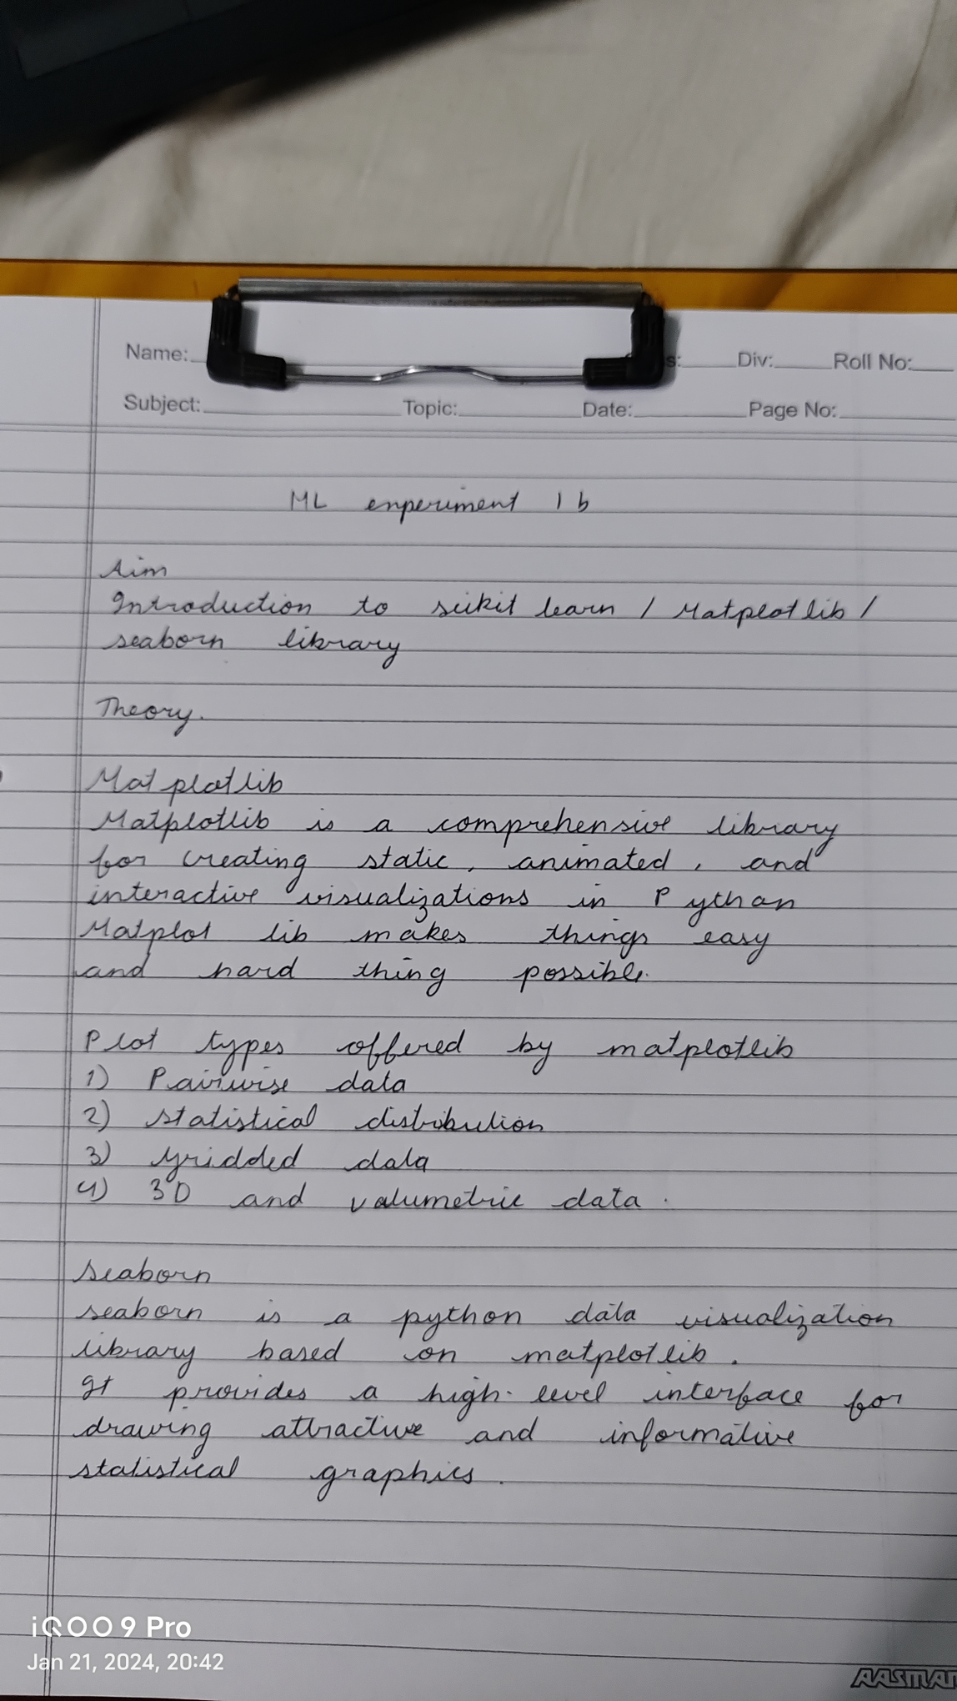 Name: Div: Roll No:
Subject: Topic: Date: Page No:
ML enperiment 1 b
Aim
Introduction to scikit learn / Matplotlib /
seaborn library
Theory.
Mat plotlib
Matplotlib is a comprehensive library
for creating static, animated, and
interactive visualizations in P ython
Matplot lib makes things easy
and hard thing possible.
Plot types offered by matplotlib
1) Pairwise data
2) statistical distribution
3) Gridded data
4) 3D and valumetric data.
Seaborn
seaborn is a python data visualization
library based on matplotlib.
It provides a high-level interface for
drawing attractive and informative
statistical graphics.
iQOO 9 Pro
Jan 21, 2024, 20:42